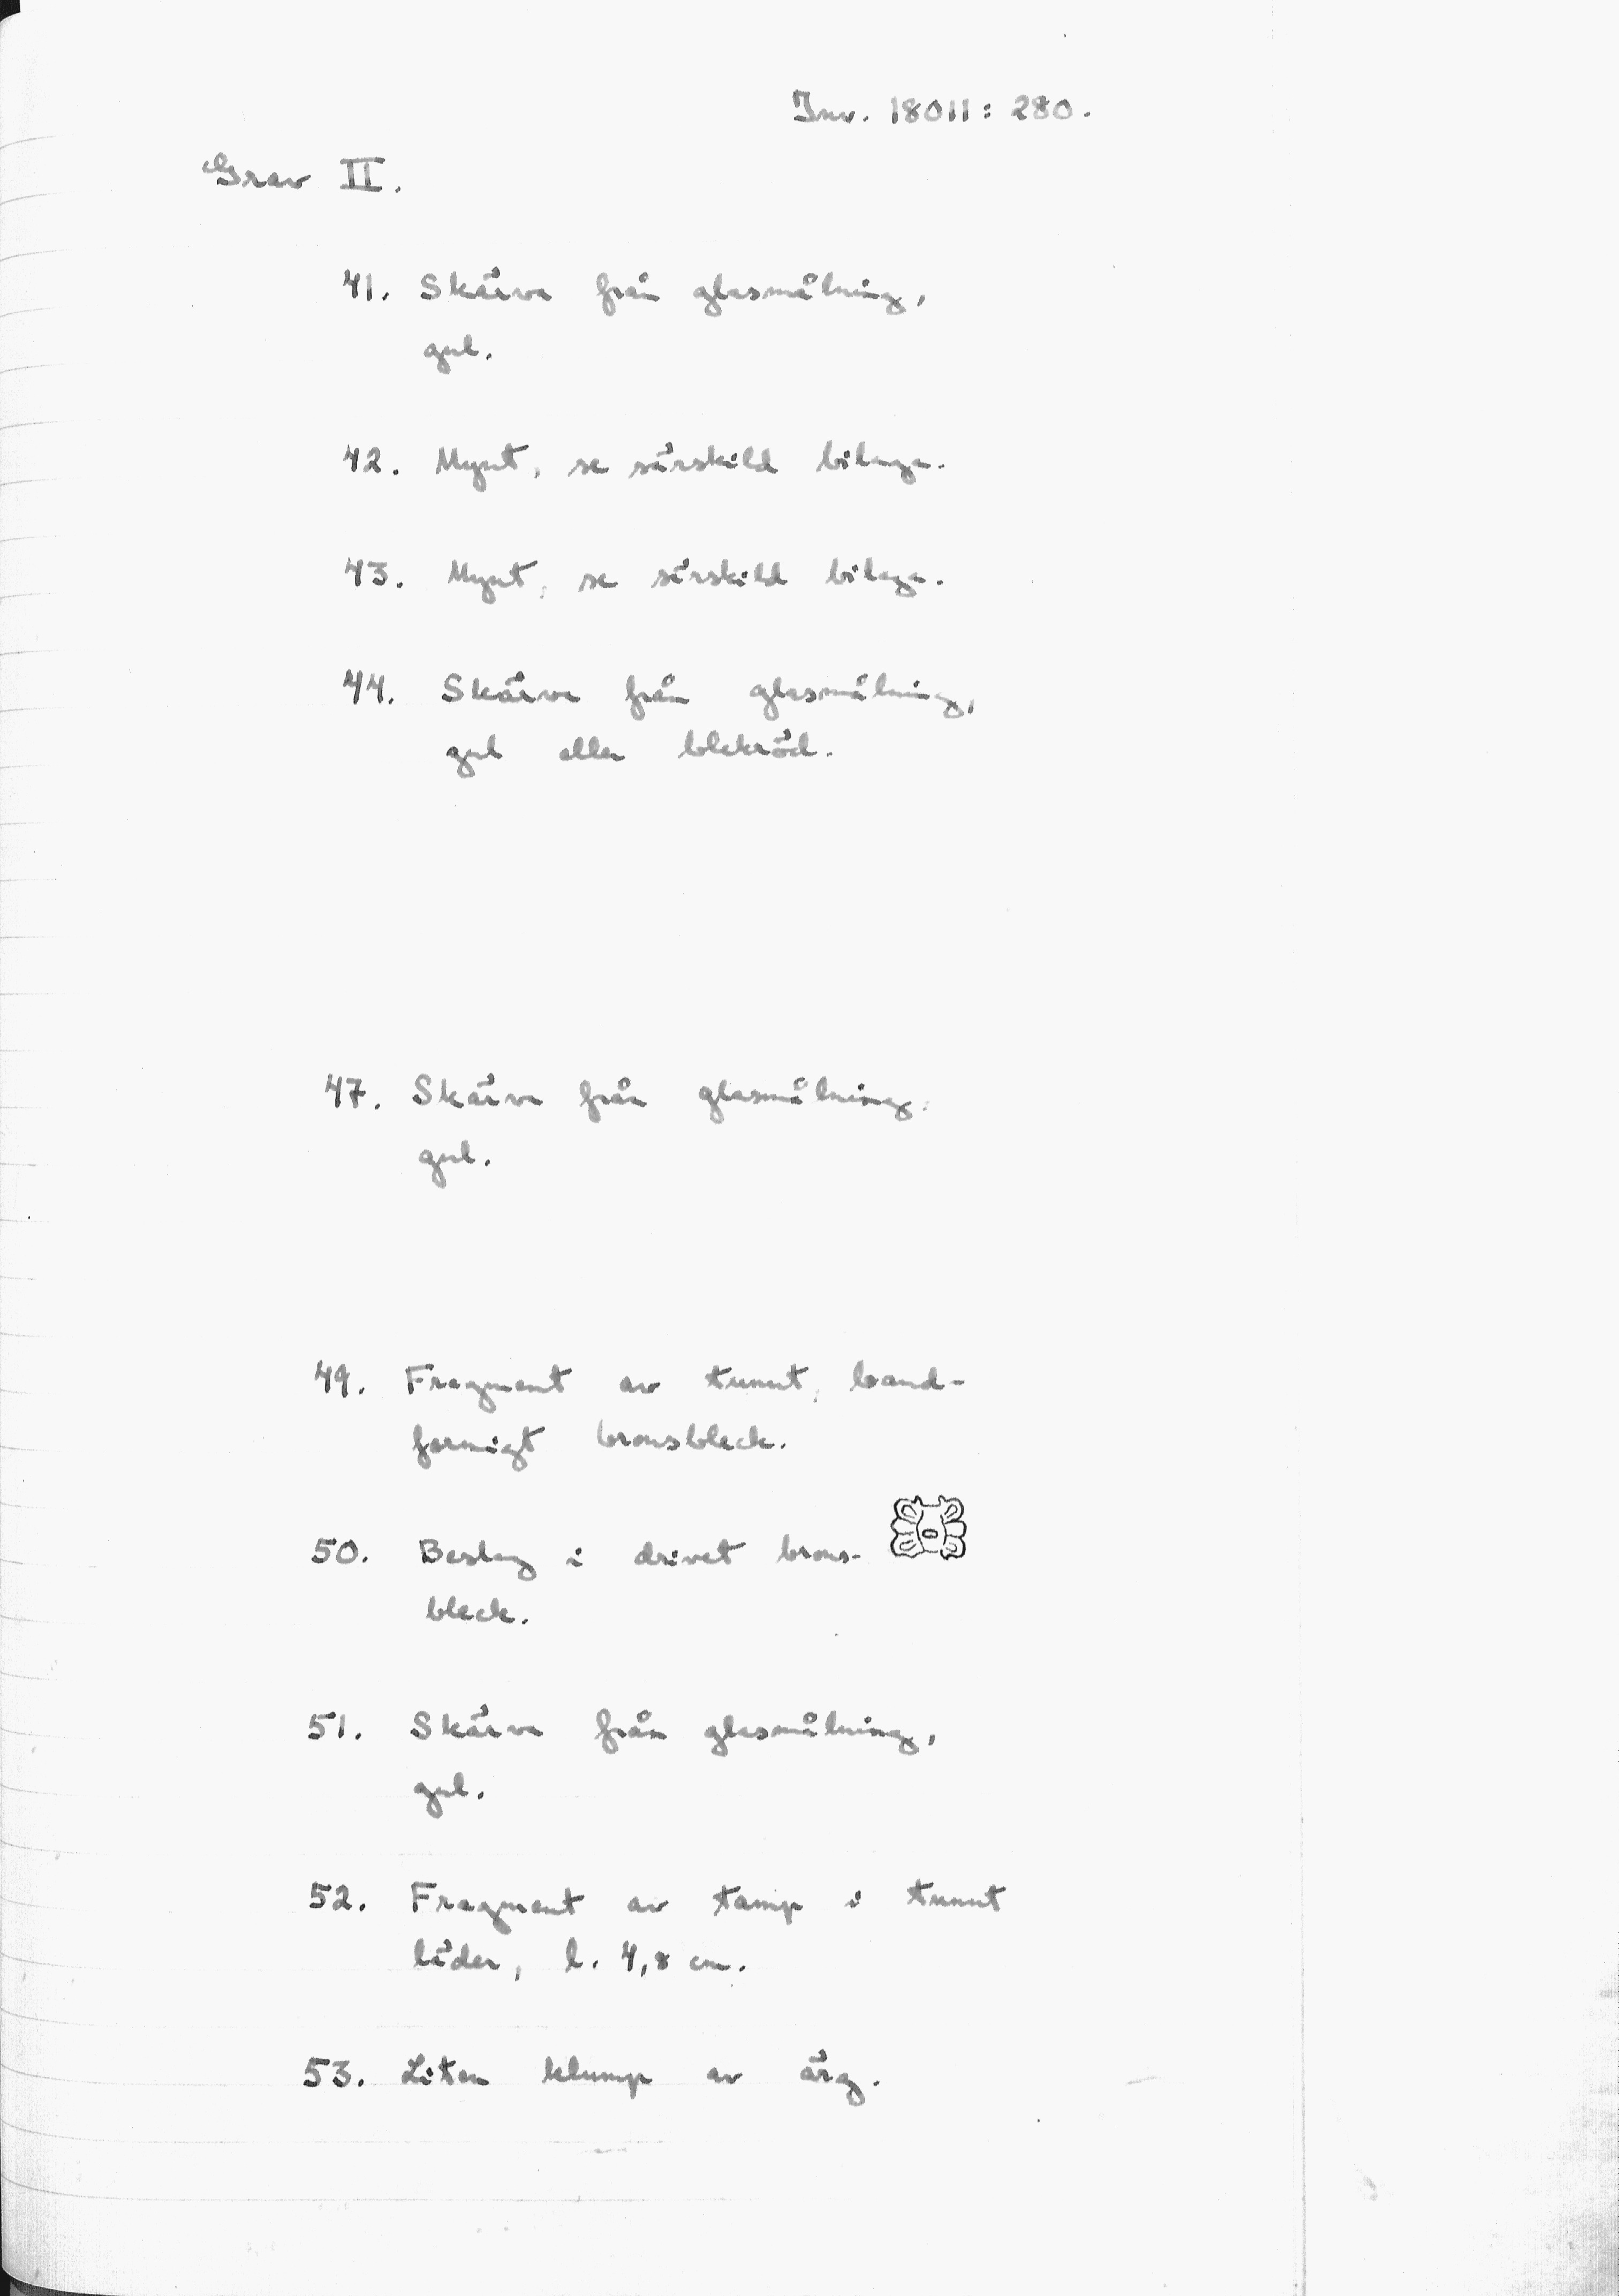 Inv. 18011: 280.
Grav II.
41. Skärva från glasmålning,
gul.
42. Mynt, se särskild bilaga.
43. Mynt, se särskild bilaga.
44. Skärva från glasmålning,
gul eller blekröd.
47. Skärva från glasmålning,
gul.
49. Fragment av tunnt, band-
formigt bronsbleck.
50. Beslag i drivet brons-
bleck.
51. Skärva från glasmålning,
gul.
52. Fragment av tamp i tunnt
läder, l. 4,8 cm.
53. Liten klump av ärg.